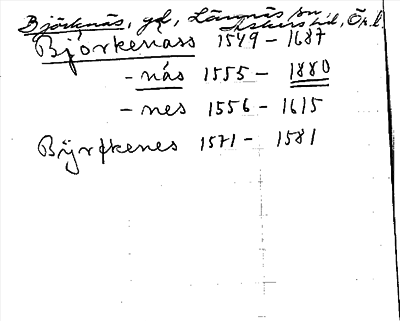 Björknäs, gd, Lännäs sn
Askers hd, Ör. l.
Björkenass 1549 - 1687
- näs 1555 - 1880
- nes 1556 - 1615
Byrkenes 1571 - 1581